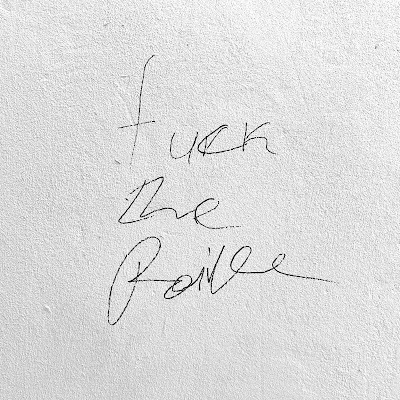 fuck
the
Poilce